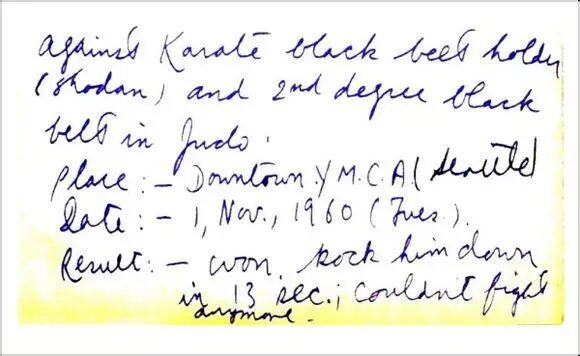 against Karate black belt holder
(shodan) and 2nd degree black
belt in Judo.
Place:- Downtown Y.M.C.A (Seattle)
Date:- 1, Nov., 1960 (Tues.).
Result:- won. kock him down
in 13 sec.; couldn't fight
anymore.